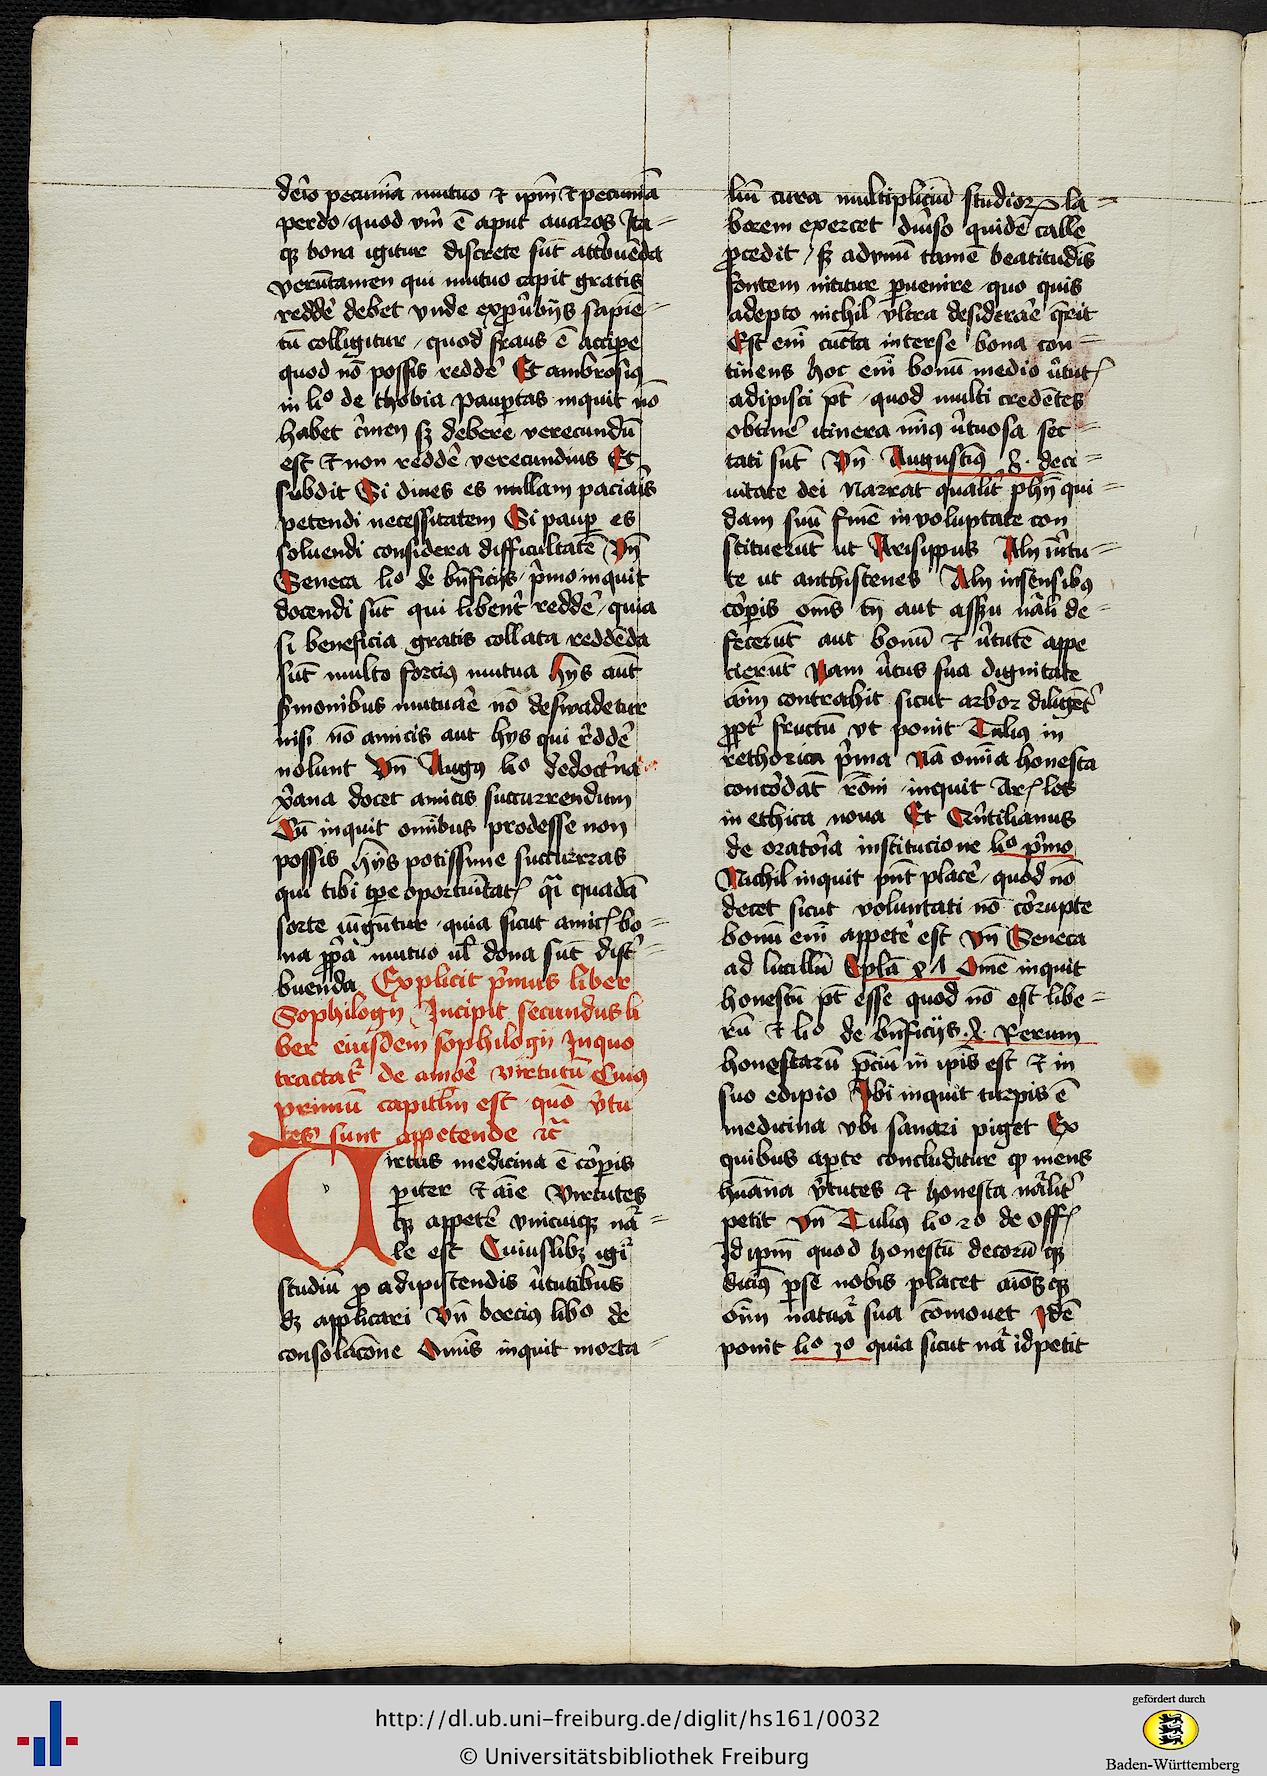 dero pecuniā mutuo et ipm̄ et pecuniā
perdo quod vm̄ ē aput auaros Ita-
qꝫ bona igitur discrete sūt attbuēda
verūtamen qui mutuo capit gratis
redde᷑ debet vnde ex ꝓūbijs sapiē-
tū colligitur quod fraus ē accipe
quod nō possis redde᷑ Et ambrosiꝰ
in liº de thobia paup̱tas inquit nō
habet c᷑men sꝫ debere verecundū
est et non redde᷑ verecundius Et
subdit Si diues es nullam paciar᷑s
petendi necessitatem Si paup̱ es
soluendi considera difficultatē Vn̄
Seneca liº de bn̄ficijs p᷑mo inquit
docendi sūt qui libent᷑ redde᷑ quia
si beneficia gratis collata reddēda
sūt multo forciꝰ mutua hijs aūt
s᷑monibus mutua᷑e nō desiuadetur
nisi nō amicis aut hys qui r᷑dde᷑
nolunt Vn̄ Augꝰ liº de doct᷑na
xp̄ana docet amicis succurrendum
Cū inquit om̄ibus prodesse non
possis hijs potissime succurras
qui tibi tp̱e oportūitatꝭ q̄i quadā
sorte iūgūtur quia sicut amicꝭ bo-
na pp̄a mutuo ul̄ dona sūt dist᷑-
buenda Explicit p᷑mus liber
Sophilogij Incipit secundus li
ber eiusdem sophilogij In quo
tractat᷑ de amo᷑e virtutū Cuiꝰ
primū capitl̄m est quō v᷑tu
tes sunt appetende rc̄
Uirtus medicina ē co᷑pis
pariter et aīe Virtutes
qꝫ appete᷑ vnicuiqꝫ nāː-
le est Cuiuslibꝫ igi᷑
studiū ꝓ adipiscendis v᷑tutibus
dꝫ applicari Vn̄ boeciꝰ libº de
consolacōne Om̄is inquit morta-
liū cura multipliciū studioꝝ la-
borem exercet diu᷑so quidē calle
ꝓcedit sꝫ ad vnū tamē beatitudīs
fontem nititur ꝑuenire quo quis
adepto nichil vltra desidera᷑e q᷑rit
Est eīm cūcta interse bona con-
tinens hoc eīm bonū medio v᷑tutꝭ
adipisci pt̄ quod multi credētes
obtine᷑ itinera miꝰ v᷑tuosa sec-
tati sūt Vn̄ Augustiꝰ 8. de ci-
uitate dei Narrat qualit᷑ phȳ qui-
dam suū finē in voluptate con
stituerūt ut Arisippus Alij in v᷑tu-
te ut anthistenes Alij insensibꝰ
co᷑pis om̄s tn̄ aut assu nāli de-
fecerūt aut bonū et v᷑tutē appe
cierūt Nam v᷑tus sua dignitate
oīm contrahit sicut arbor diligēt᷑
ppt᷑ fructū vt ponit Tuliꝰ in
rethorica p᷑ma Nā om̄ia honesta
concordāt rōni inquit Arꝭ les
in ethica noua Et Quītilianus
de orato᷑ia institucione liº p᷑mo
Nichil inquit pn̄t place᷑ quod nō
decet sicut voluntati nō co᷑rupte
bonū eīm appete᷑ est Vn̄ Seneca
ad lucillū Epl̄a Om̄e inquit
honestū pt̄ esse quod nō est libe-
rū et liº de bn̄ficijs. Rerum
honestarū p̄ciū in ip̄is est et in
suo edipio Vbi inquit turpis ē
medicina vbi sanari piget Ex
quibus ap̱te concluditur qꝫ mens
huāna v᷑tutes et honesta nāːlit᷑
petit Vn̄ Tuliꝰ liº 2º de offꝭ
Id ipm̄ quod honestū decorū qꝫ
diciꝰ p̱ se nobis placet aīosqꝫ
oīm natu᷑a sua cōmouet Idē
ponit liº 3º quia sicut nā᷑ id petit
http://dl.ub.uni-freiburg.de/diglit/hs161/0032
© Universitätsbibliothek Freiburg
gefördert durch
Baden-Württemberg